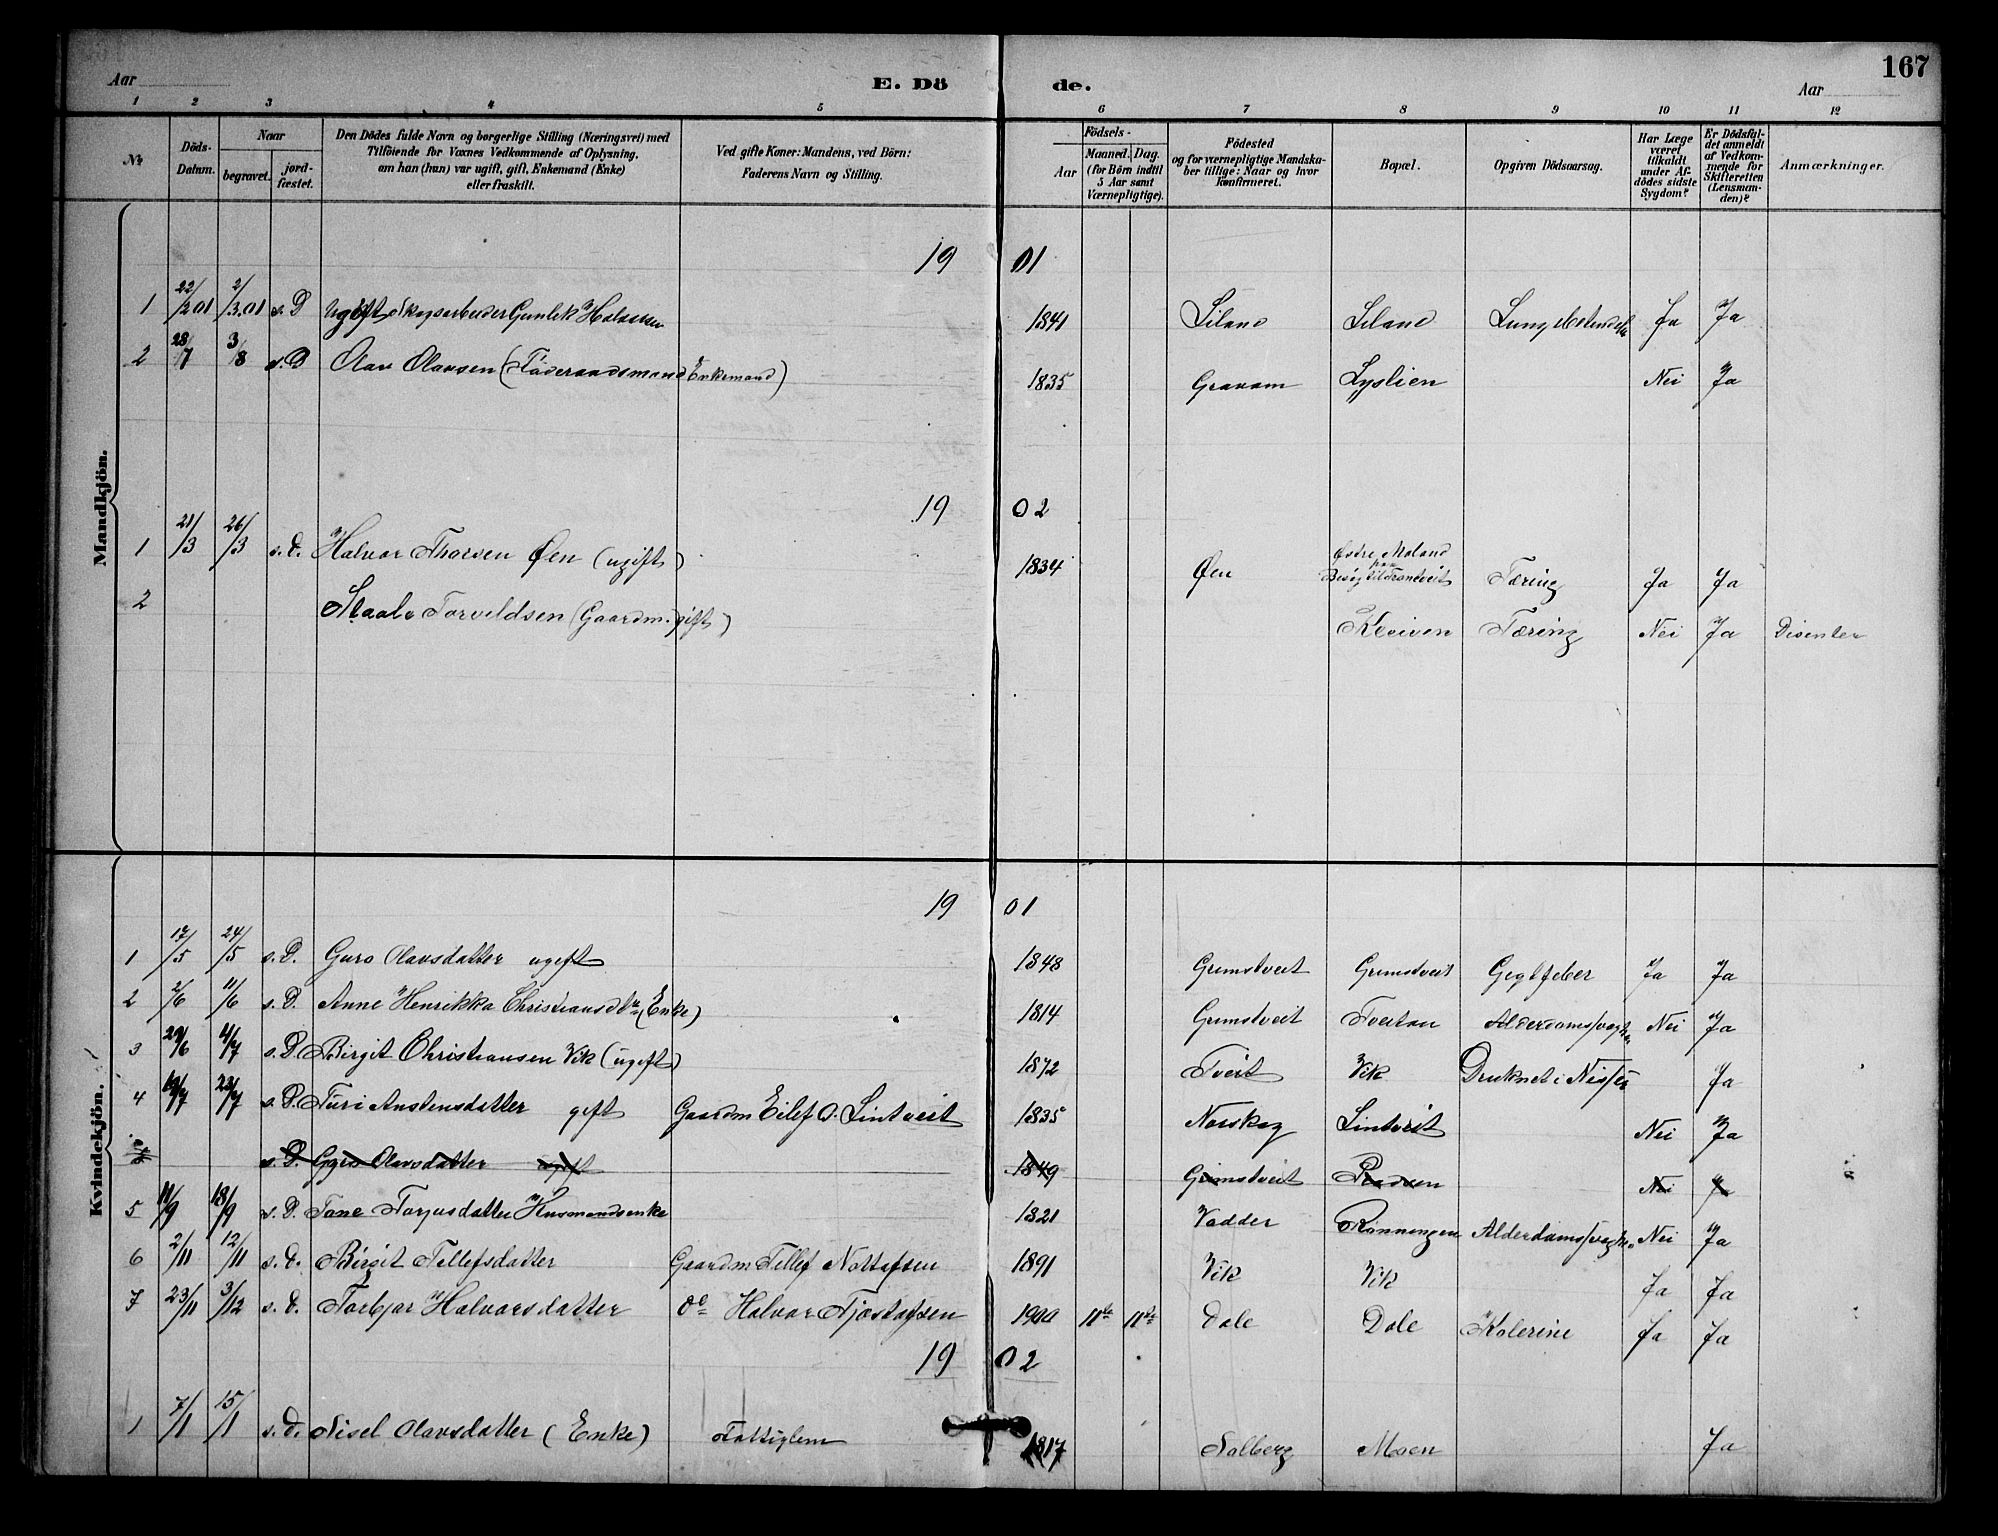 167
Aar
E. Dö
de.
Aar
1 2 3 4 5 6 7 8 9 10 11 12
No
Döds-Datum.
Naar
begravet.
jordfæstet.
Den Dödes fulde Navn og borgerlige Stilling (Næringsvei) med
Tilföiende for Voxnes Vedkommende af Oplysning,
om han (hun) var ugift, gift, Enkemand (Enke)
eller fraskilt.
Ved gifte Koner: Mandens, ved Börn:
Faderens Navn og Stilling.
Födsels-
Aar
Maaned. Dag.
(for Börn indtil
5 Aar samt
Værnepligtige).
Födested
og for værnepligtige Mandska-
ber tillige: Naar og hvor
konfirmeret.
Bopæl.
Opgiven Dödsaarsag.
Har Læge
været
tilkaldt
under Af-
dödes sidste
Sygdom?
Er Dödsfal-
det anmeldt
af Vedkom-
mende for
Skifteretten
(Lensman-
den)?
Anmærkninger.
Mandkjön.
19 01
1 22/2 01 2/3.01 s.D Ugift Skogsarbeider Gunlek Halvorsen 1841 Siland Siland Ja Ja
2 28/7 3/8 s.D Olav Olavsen (Föderaadsmand Enkemand) 1835 Gravom Lyslien Nei Ja
19 02
1 21/3 26/3 s.d. Halvor Thorsen Øen (ugift) 1834 Øen Östre Moland paa Besög til Frantveit Tæring Ja Ja
2 Staale Torveldsen (Gaardm. gift) Kleiven Tæring Nei Ja Disenter
Kvindekjön.
19 01
1 17/5 24/5 s.D. Guro Olavsdatter ugift 1848 Grimstveit Grimstveit Ja Ja
2 2/6 11/6 s.D. Anne Henrikka Christiansdtr (Enke) 1814 Grimstveit Tveitan Alderdomssvaghed Nei Ja
3 29/6 4/7 s.D. Birgit Christiansen Vik (ugift) 1872 Tveit Vik Druknet i Nisser Ja
4 19/7 23/7 s.D. Turi Anstensdatter gift Gaardm Eilef O. Sintveit 1835 Norskog Sintveit Nei Ja
s.D. Gyro Olavsdatter ugift 1849 Grimstveit Nei Ja
5 11/9 18/9 s.D. Tone Torjusdatter Husmandsenke 1821 Vadder Rønningen Alderdomssvaghed Nei Ja
6 2/11 12/11 s.d. Birgit Tellefsdatter Gaardm Tellef Nottofsen 1891 Vik Vik Ja Ja
7 23/11 3/12 s.d. Torbjør Halvorsdatter do Halvor Tjostofsen 1900 11te 11te Dale Dale Kolerine Ja Ja
19 02
1 7/1 15/1 s.d. Sisel Olavsdatter (Enke) Fattiglem 1817 Solberg Moen Ja